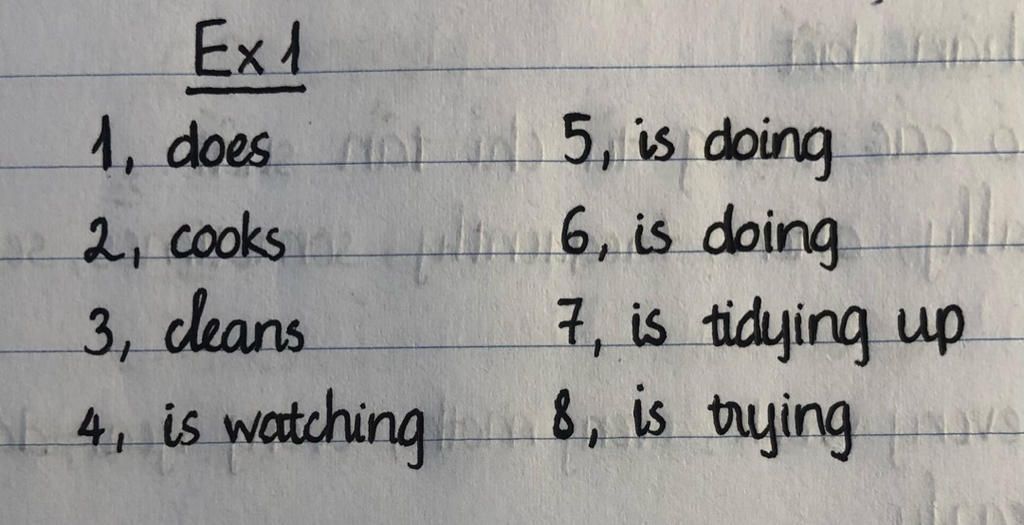 Ex 1
1, does
2, cooks
3, cleans
4, is watching
5, is doing
6, is doing
7, is tidying up
8, is trying